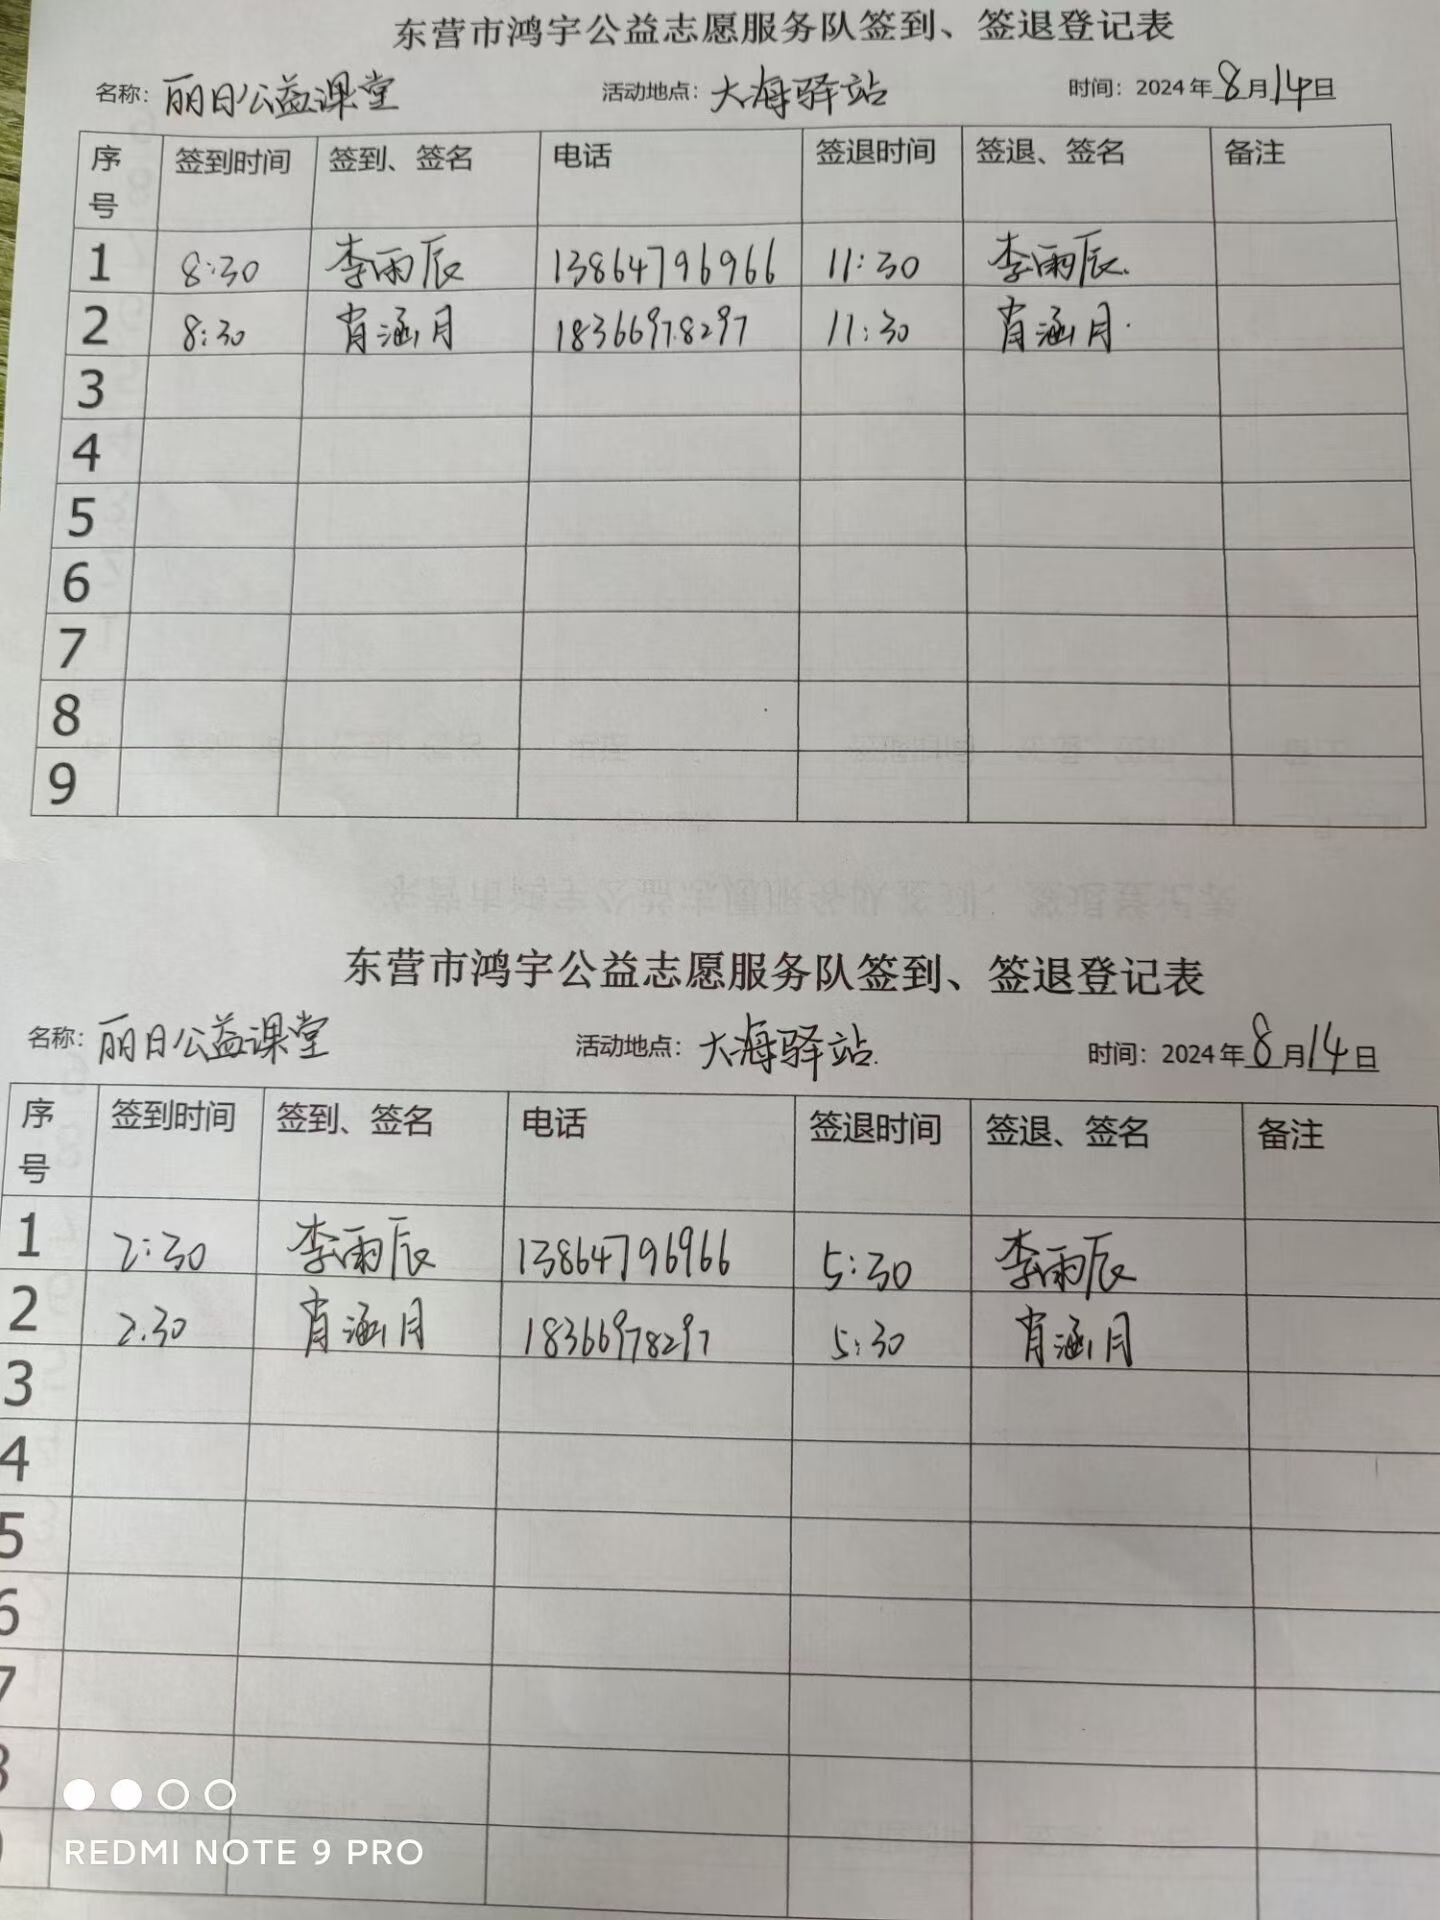 东营市鸿宇公益志愿服务队签到、签退登记表
名称：丽日公益课堂 活动地点：大海驿站 时间：2024年8月14日
序号 签到时间 签到、签名 电话 签退时间 签退、签名 备注
1 8:30 李雨辰 13864796966 11:30 李雨辰.
2 8:30 肖涵月 18366978297 11:30 肖涵月.
3
4
5
6
7
8
9
东营市鸿宇公益志愿服务队签到、签退登记表
名称：丽日公益课堂 活动地点：大海驿站. 时间：2024年8月14日
序号 签到时间 签到、签名 电话 签退时间 签退、签名 备注
1 2:30 李雨辰 13864796966 5:30 李雨辰
2 2.30 肖涵月 18366978297 5:30 肖涵月
3
4
5
6
7
8
REDMI NOTE 9 PRO